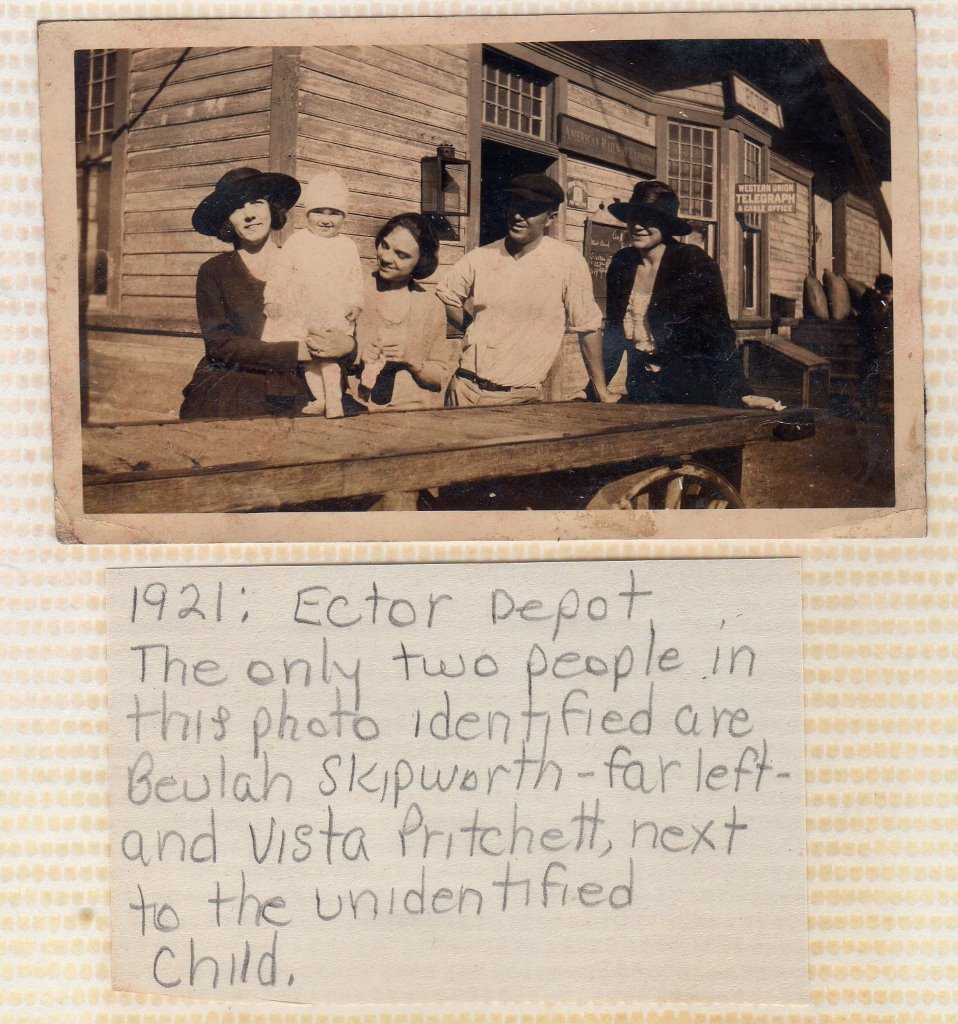 ECTOR
AMERICAN RAILWAY EXPRESS
WESTERN UNION
TELEGRAPH
& CABLE OFFICE
1921: Ector Depot
The only two people in
this photo identified are
Beulah Skipworth - far left -
and Vista Pritchett, next
to the unidentified
Child.